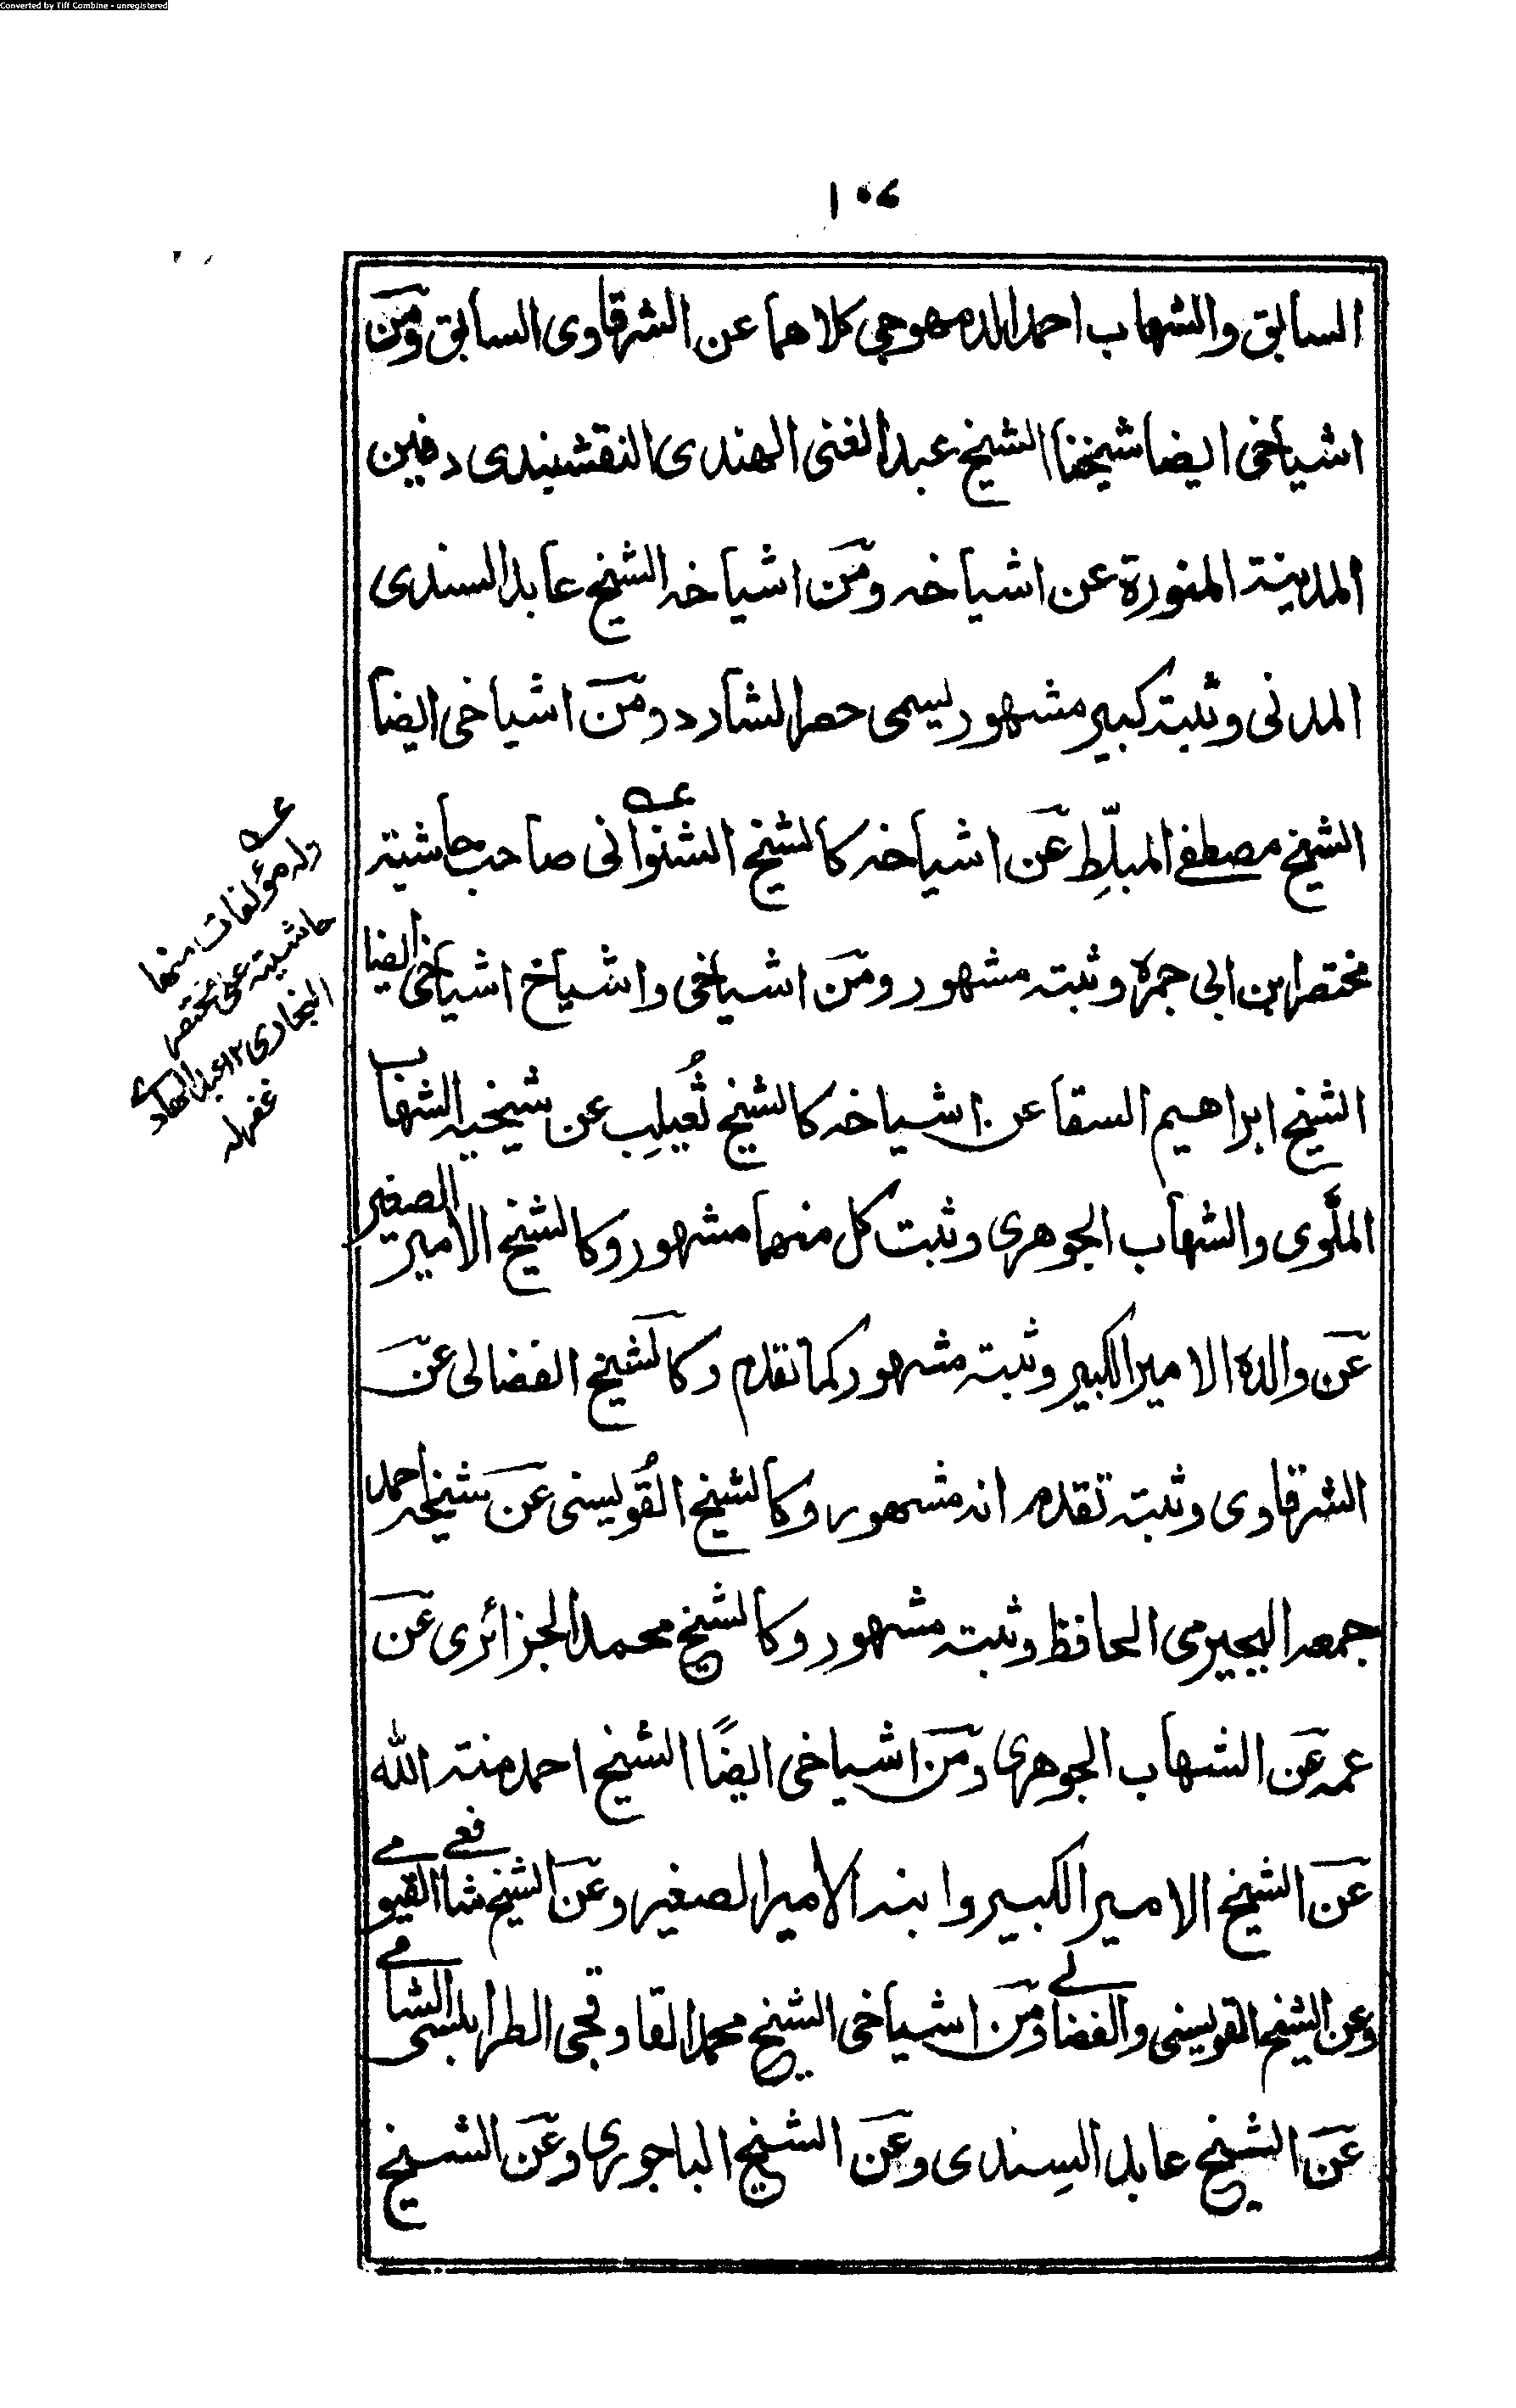 Converted by Tiff Combine - unregistered
السابق والشهاب احمد الدمهوجي كلاهما عن الشرقاوى السابق ومن
اشياخى ايضا شيخنا الشيخ عبد الغنى الهندى النقشبندى دفين
المدينة المنورة عن اشياخه ومن اشياخه الشيخ عابد السندى
المدنى وثبته كبير مشهور يسمى حصر الشارد ومن اشياخى ايضا
الشيخ مصطفے المبلّط عن اشياخه كالشيخ الشنوانى صاحب حاشية
مختصر ابن ابى جمرة وثبته مشهور ومن اشياخى واشياخ اشياخى ايضا
الشيخ ابراهيم السقا عن اشياخه كالشيخ ثُعيلِب عن شيخيه الشهاب
الملَّوى والشهاب الجوهرى وثبت كل منهما مشهور وكالشيخ الامير الصغير
عن والده الامير الكبير وثبته مشهور كما تقدم وكالشيخ الفضالى عن
الشرقاوى وثبته تقدم انه مشهور وكالشيخ القُويسنى عن شيخه احمد
جمعه البجيرمى الحافظ وثبته مشهور وكالشيخ محمد الجزائرى عن
عمه عن الشهاب الجوهرى ومن اشياخى ايضًا الشيخ احمد منة الله
عن الشيخ الامير الكبير وابنه الامير الصغير وعن الشيخ شافعے القيومے
وعن الشيخ القويسنى والفضالے ومن اشياخى الشيخ محمد القاوقجى الطرابلسى الشامے
عن الشيخ عابد السِندى وعن الشيخ الباجورى وعن الشيخ
عــه
وله مؤلفات منها
حاشية على مختصر
البخارى ١٢ عبد الهادے
غفرله